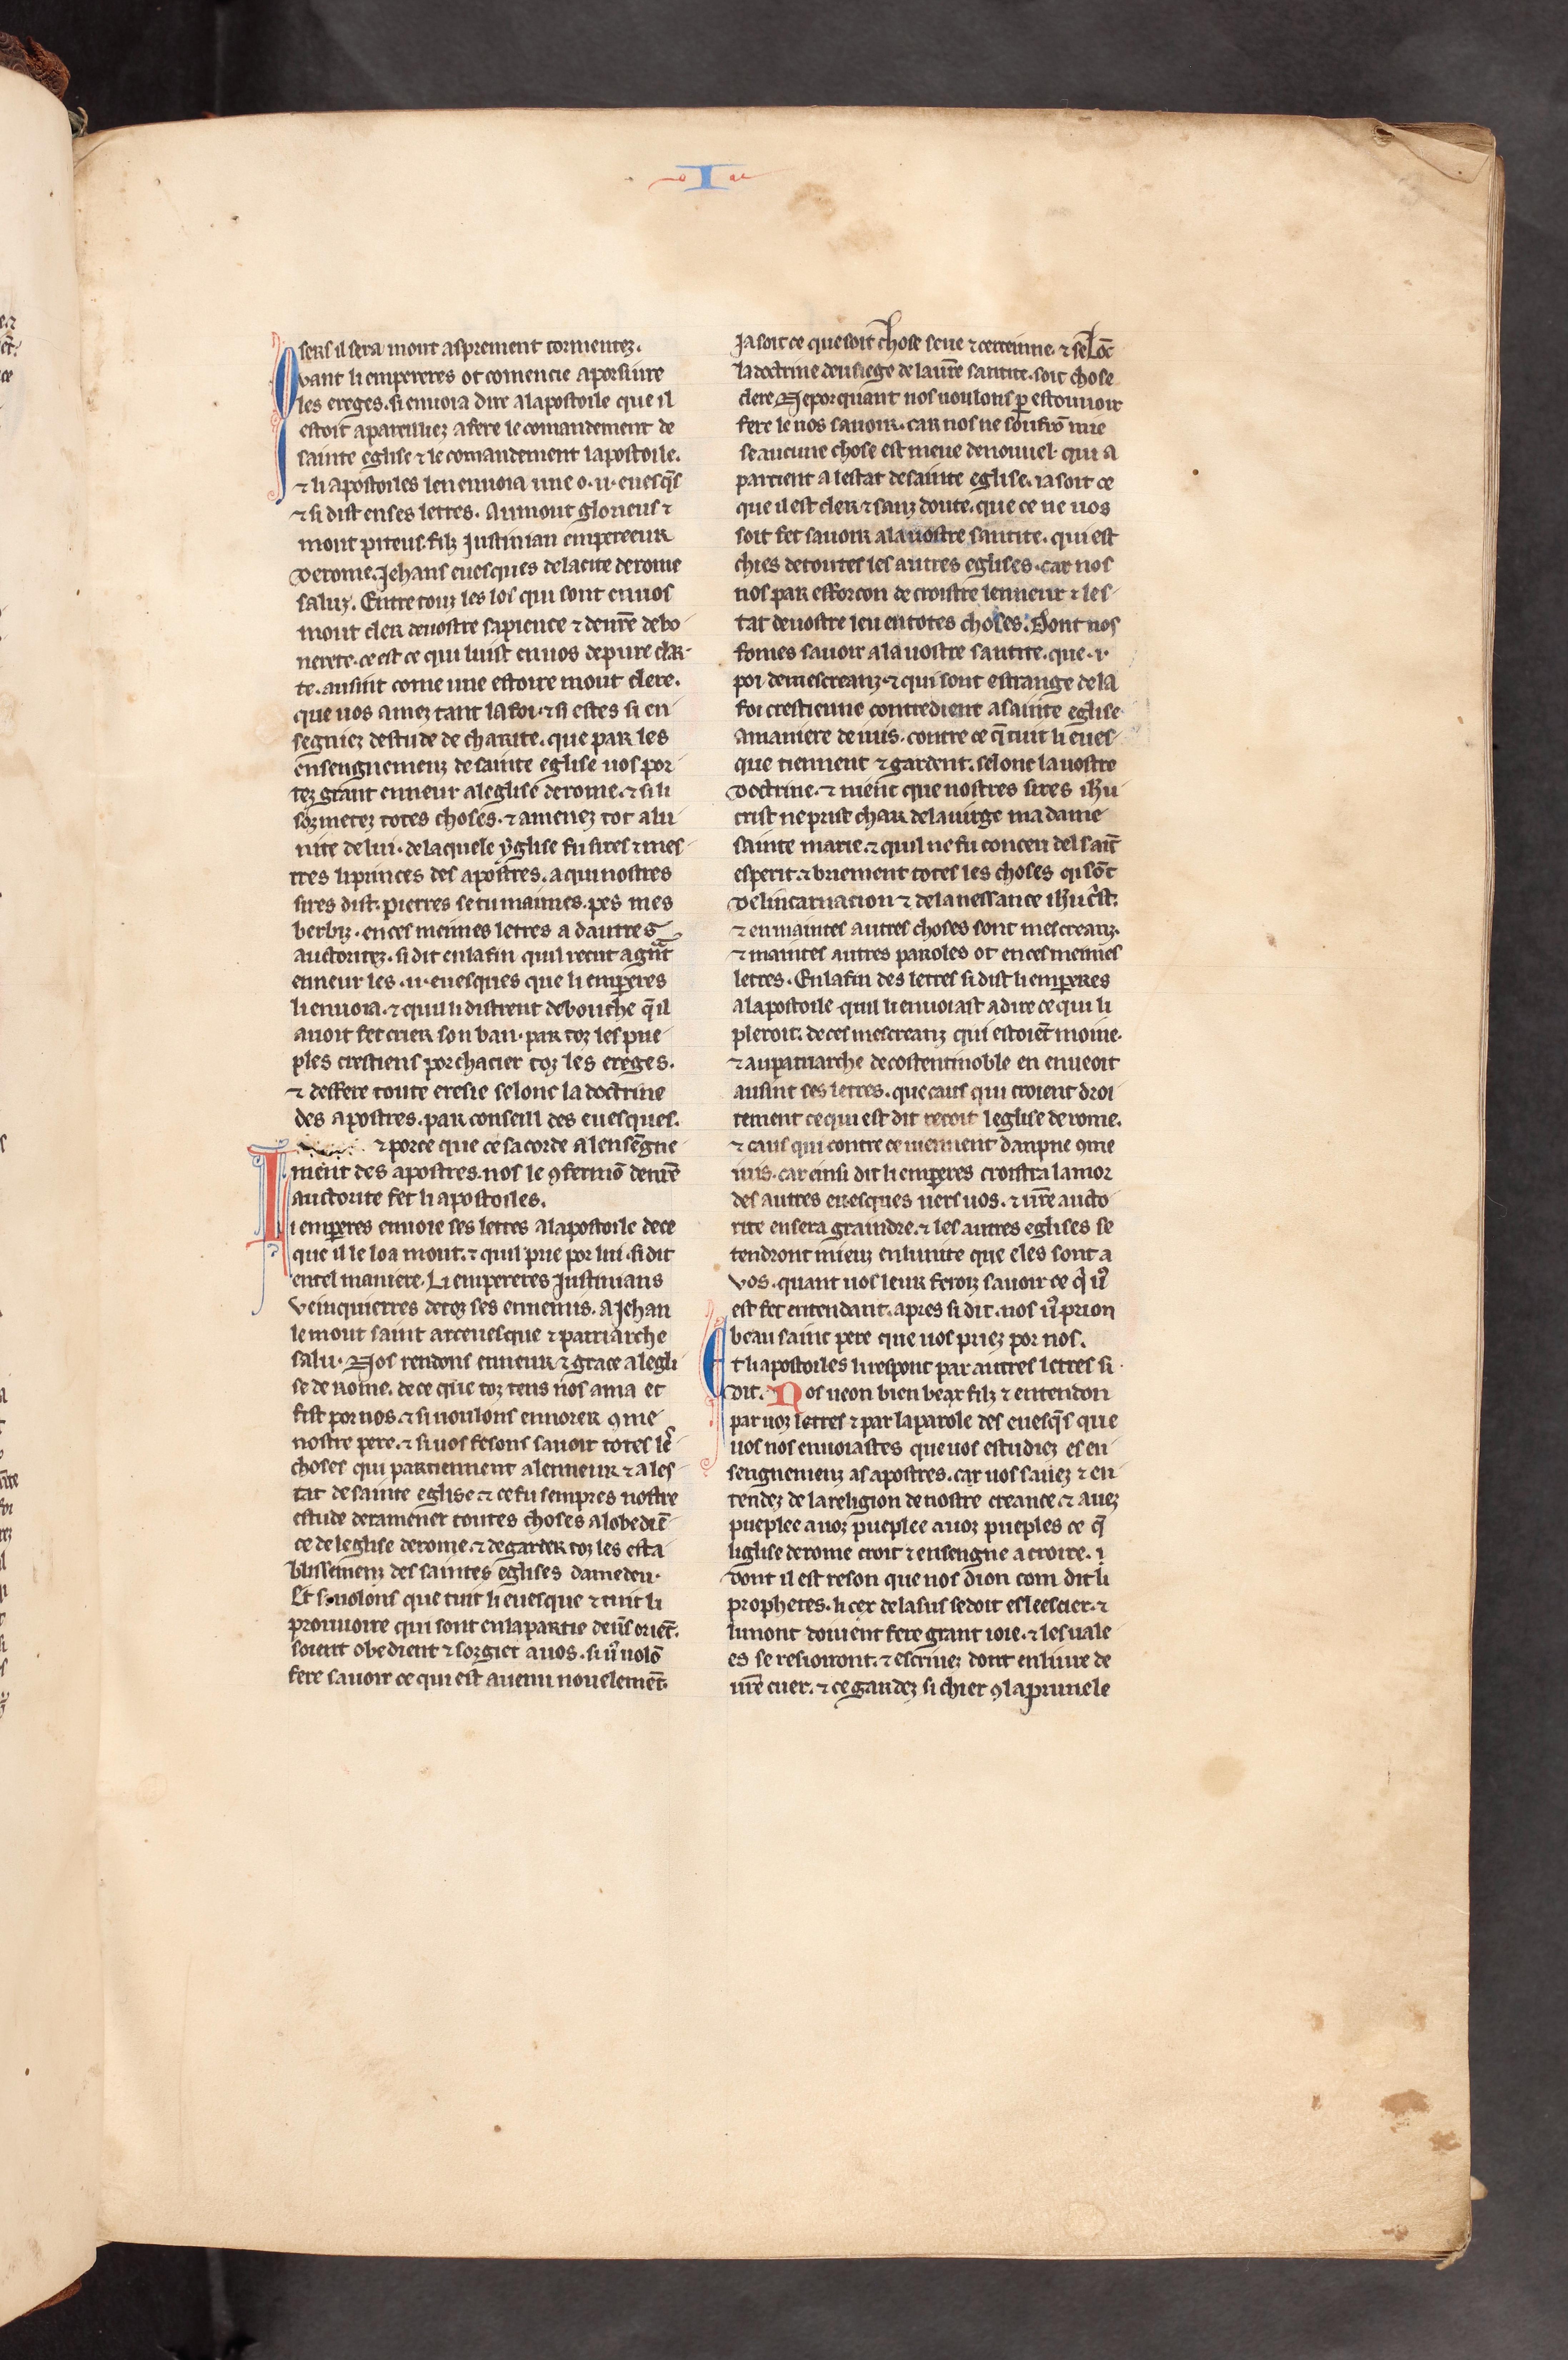 I
sers il sera mout asprement tormentez.
Quant li empereres ot comencie a porsiure
les ereges. si enuoia dire a lapostoile que il
estoit apareilliez a fere le comandement de
sainte eglise ⁊ le comandement lapostoile.
⁊ li apostoiles len enuoia une o .ii. euesq̄s
⁊ si dist en ses lettres. Au mout glorieus ⁊
mout piteus filz Justinian empereeur
de rome. Jehans euesques de la cite de rome
saluz. Entre touz les los qui sont en uos
mout cler de uostre sapience ⁊ de ur̄e debo
nerete. ce est ce qui luist en uos de pure clar
te. ausint come une estoire mout clere.
que uos amez tant la foi. ⁊ si estes si en
segniez destude de charite. que par les
enseignemenz de sainte eglise uos por
tez grant enneur a leglise de rome. ⁊ si li
sozmetez totes choses. ⁊ amenez tot a lu
nite de lui. de la quele yglise fu sires ⁊ mes
tres li princes des apostres. a qui nostres
sires dist. pierres se tu maimes. pes mes
berbiz. en ces meimes letres a dautres
auctoritez. si dit en la fin quil recut a gr̄nt
enneur les .ii. euesques que li emꝑeres
li enuoia. ⁊ quil li distrent de bouche q̄ il
auoit fet crier son ban. par toz les pue
ples crestiens por chacier toz les ereges.
⁊ deffere toute eresie selonc la doctrine
des apostres. par conseill des euesques.
⁊ por ce que ce sacorde a lenseigne
ment des apostres. nos le ꝯfermō de ur̄e
auctorite fet li apostoiles.
Li emꝑeres enuoie ses letres a lapostoile de ce
que il le loa mout. ⁊ quil prie por lui. si dit
en tel maniere. Li empereres Justinians
veinquierres de toz ses ennemis. A Jehan
le mout saint arceuesque ⁊ patriarche
salu. Nos rendons enneur ⁊ grace a legli
se de rome. de ce que toz tens nos ama et
fist por nos. ⁊ si uoulons ennorer ꝯme
nostre pere. ⁊ si uos fesons sauoir totes les
choses qui partiennent a lenneur ⁊ a les
tat de sainte eglise ⁊ ce fu sempres nostre
estude de ramener toutes choses a lobediē
ce de leglise de rome. ⁊ de garder toz les esta
blissemenz des saintes eglises damedeu.
Et si uolons que tuit li euesque ⁊ tuit li
prouuoire qui sont en la partie deu̅s oriēt.
soient obedient ⁊ sozgiet a uos. si uͦ uolō
fere sauoir ce qui est auenu nouelemēt.
Ja soit ce que soit chose seue ⁊ certeinne. ⁊ selōc
la doctrine deu siege de la ur̄e saintite. soit chose
clere. Ne por quant nos uoulons ꝑ estouuoir
fere le uos sauoir. car nos ne soufrō mie
se aucune chose est meue de nouuel. qui a
partient a lestat de sainte eglise. ia soit ce
que il est cler ⁊ sanz doute. que ce ne uos
soit fet sauoir a la uostre saintite. qui est
chies de toutes les autres eglises. car nos
nos par efforcon de croistre lenneur ⁊ les
tat de uostre leu en totes choses. Dont nos
fomes sauoir a la uostre saintite. que .i.
poi de mescreanz. ⁊ qui sont estrange de la
foi crestienne contredient a sainte eglise
a maniere de iuis. contre ce q̄ tuit li eues
que tiennent ⁊ gardent. selonc la uostre
doctrine. ⁊ nient que nostres sires ihu
crist ne prist char de la uirge ma dame
sainte marie. ⁊ quil ne fu conceu del sait̄
esperit. ⁊ briement totes les choses qi sōt
de lincarnation ⁊ de la nessance ihu cr̄st.
⁊ en maintes autres choses sont mescreanz.
⁊ maintes autres paroles ot en ces meimes
lettres. En la fin des lettres si dist li emꝑeres
a lapostoile quil li enuoiast a dire ce qui li
pleroit. de ces mescreanz qui estoiēt moine.
⁊ au patriarche de costentinoble en enueoit
ausint ses lettres. que caus qui croient droi
tement ce qui est dit recoit leglise de rome.
⁊ caus qui contre ce uiennent danpne ꝯme
iuis. car einsi dit li emꝑeres croistra lamor
des autres euesques uers uos. ⁊ ur̄e aucto
rite en sera graindre. ⁊ les autres eglises se
tendront mieuz en lunite que eles sont a
vos. quant uos leur feroiz sauoir ce q̄ uͦ
est fet entendant. apres si dit. nos uͦ prion
beau saint pere que uos priez por nos.
Et li apostoiles li respont par autres letres si
dit. Nos ueon bien beax filz ⁊ entendon
par uoz letres ⁊ par la parole des euesq̄s que
uos nos enuoiastes que uos estudiez es en
seignemenz as apostres. car uos sauez ⁊ en
tendez de la religion de nostre creance. ⁊ auez
pueplee a uoz pueplee a uoz pueples ce q̄
liglise de rome croit ⁊ enseigne a croire. i
dont il est reson que nos dion com dit li
prophetes. li cex de la sus se doit esleescier. ⁊
li mont doiuent fere grant ioie. ⁊ les uale
es se resioiront. ⁊ escriuez dont en liure de
ur̄e cuer. ⁊ ce gardez si chier ꝯ la prunele